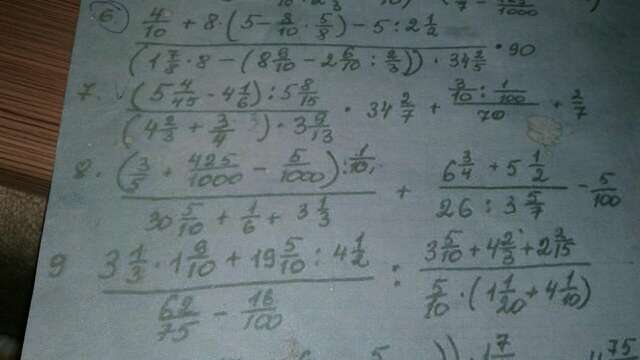 6. (4/10 + 8 · (5 - 8/10 · 5/8) - 5 : 2 1/2) / ((1 7/8 · 8 - (8 9/10 - 2 6/10 : 2/3)) · 34 2/5) · 90
7. ((5 4/45 - 4 1/6) : 5 8/15) / ((4 2/3 + 3/4) · 3 9/13) · 34 2/7 + (3/10 : 1/100) / 70 + 2/7
8. ((3/5 + 425/1000 - 5/1000) : 1/10) / (30 5/10 + 1/6 + 3 1/3) + (6 3/4 + 5 1/2) / (26 : 3 5/7) - 5/100
9 (3 1/3 · 1 9/10 + 19 5/10 : 4 1/2) / (62/75 - 16/100) : (3 5/10 + 4 2/3 + 2 2/15) / (5/10 · (1 1/20 + 4 1/10))